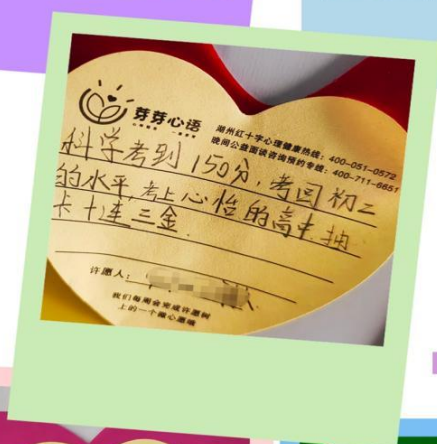 芽芽心语
湖州红十字心理健康热线：400-051-0572
晚间公益面谈咨询预约专线：400-711-6651
科学考到150分，考回初二
的水平，考上心怡的高中，抽
卡十连三金
许愿人：
我们每周会完成许愿树
上的一个暖心愿喔